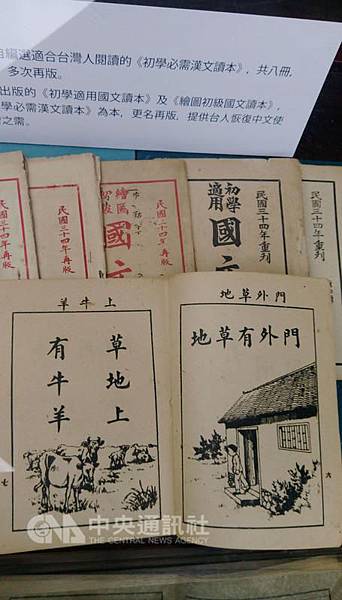 組編選適合台灣人閱讀的《初學必需漢文讀本》，共八冊，
多次再版。
出版的《初學適用國文讀本》及《繪圖初級國文讀本》，
學必需漢文讀本》為本，更名再版，提供台人恢復中文使
之需。
民國三十四年再版
民國三十四年再版
繪圖
國文
民國三十四年再版
初學
適用
國文
民國三十四年重刊
民國三十四年重刊
門外草地
門外有草地
六
上牛羊
草地上
有牛羊
七
CNA 中央通訊社
THE CENTRAL NEWS AGENCY